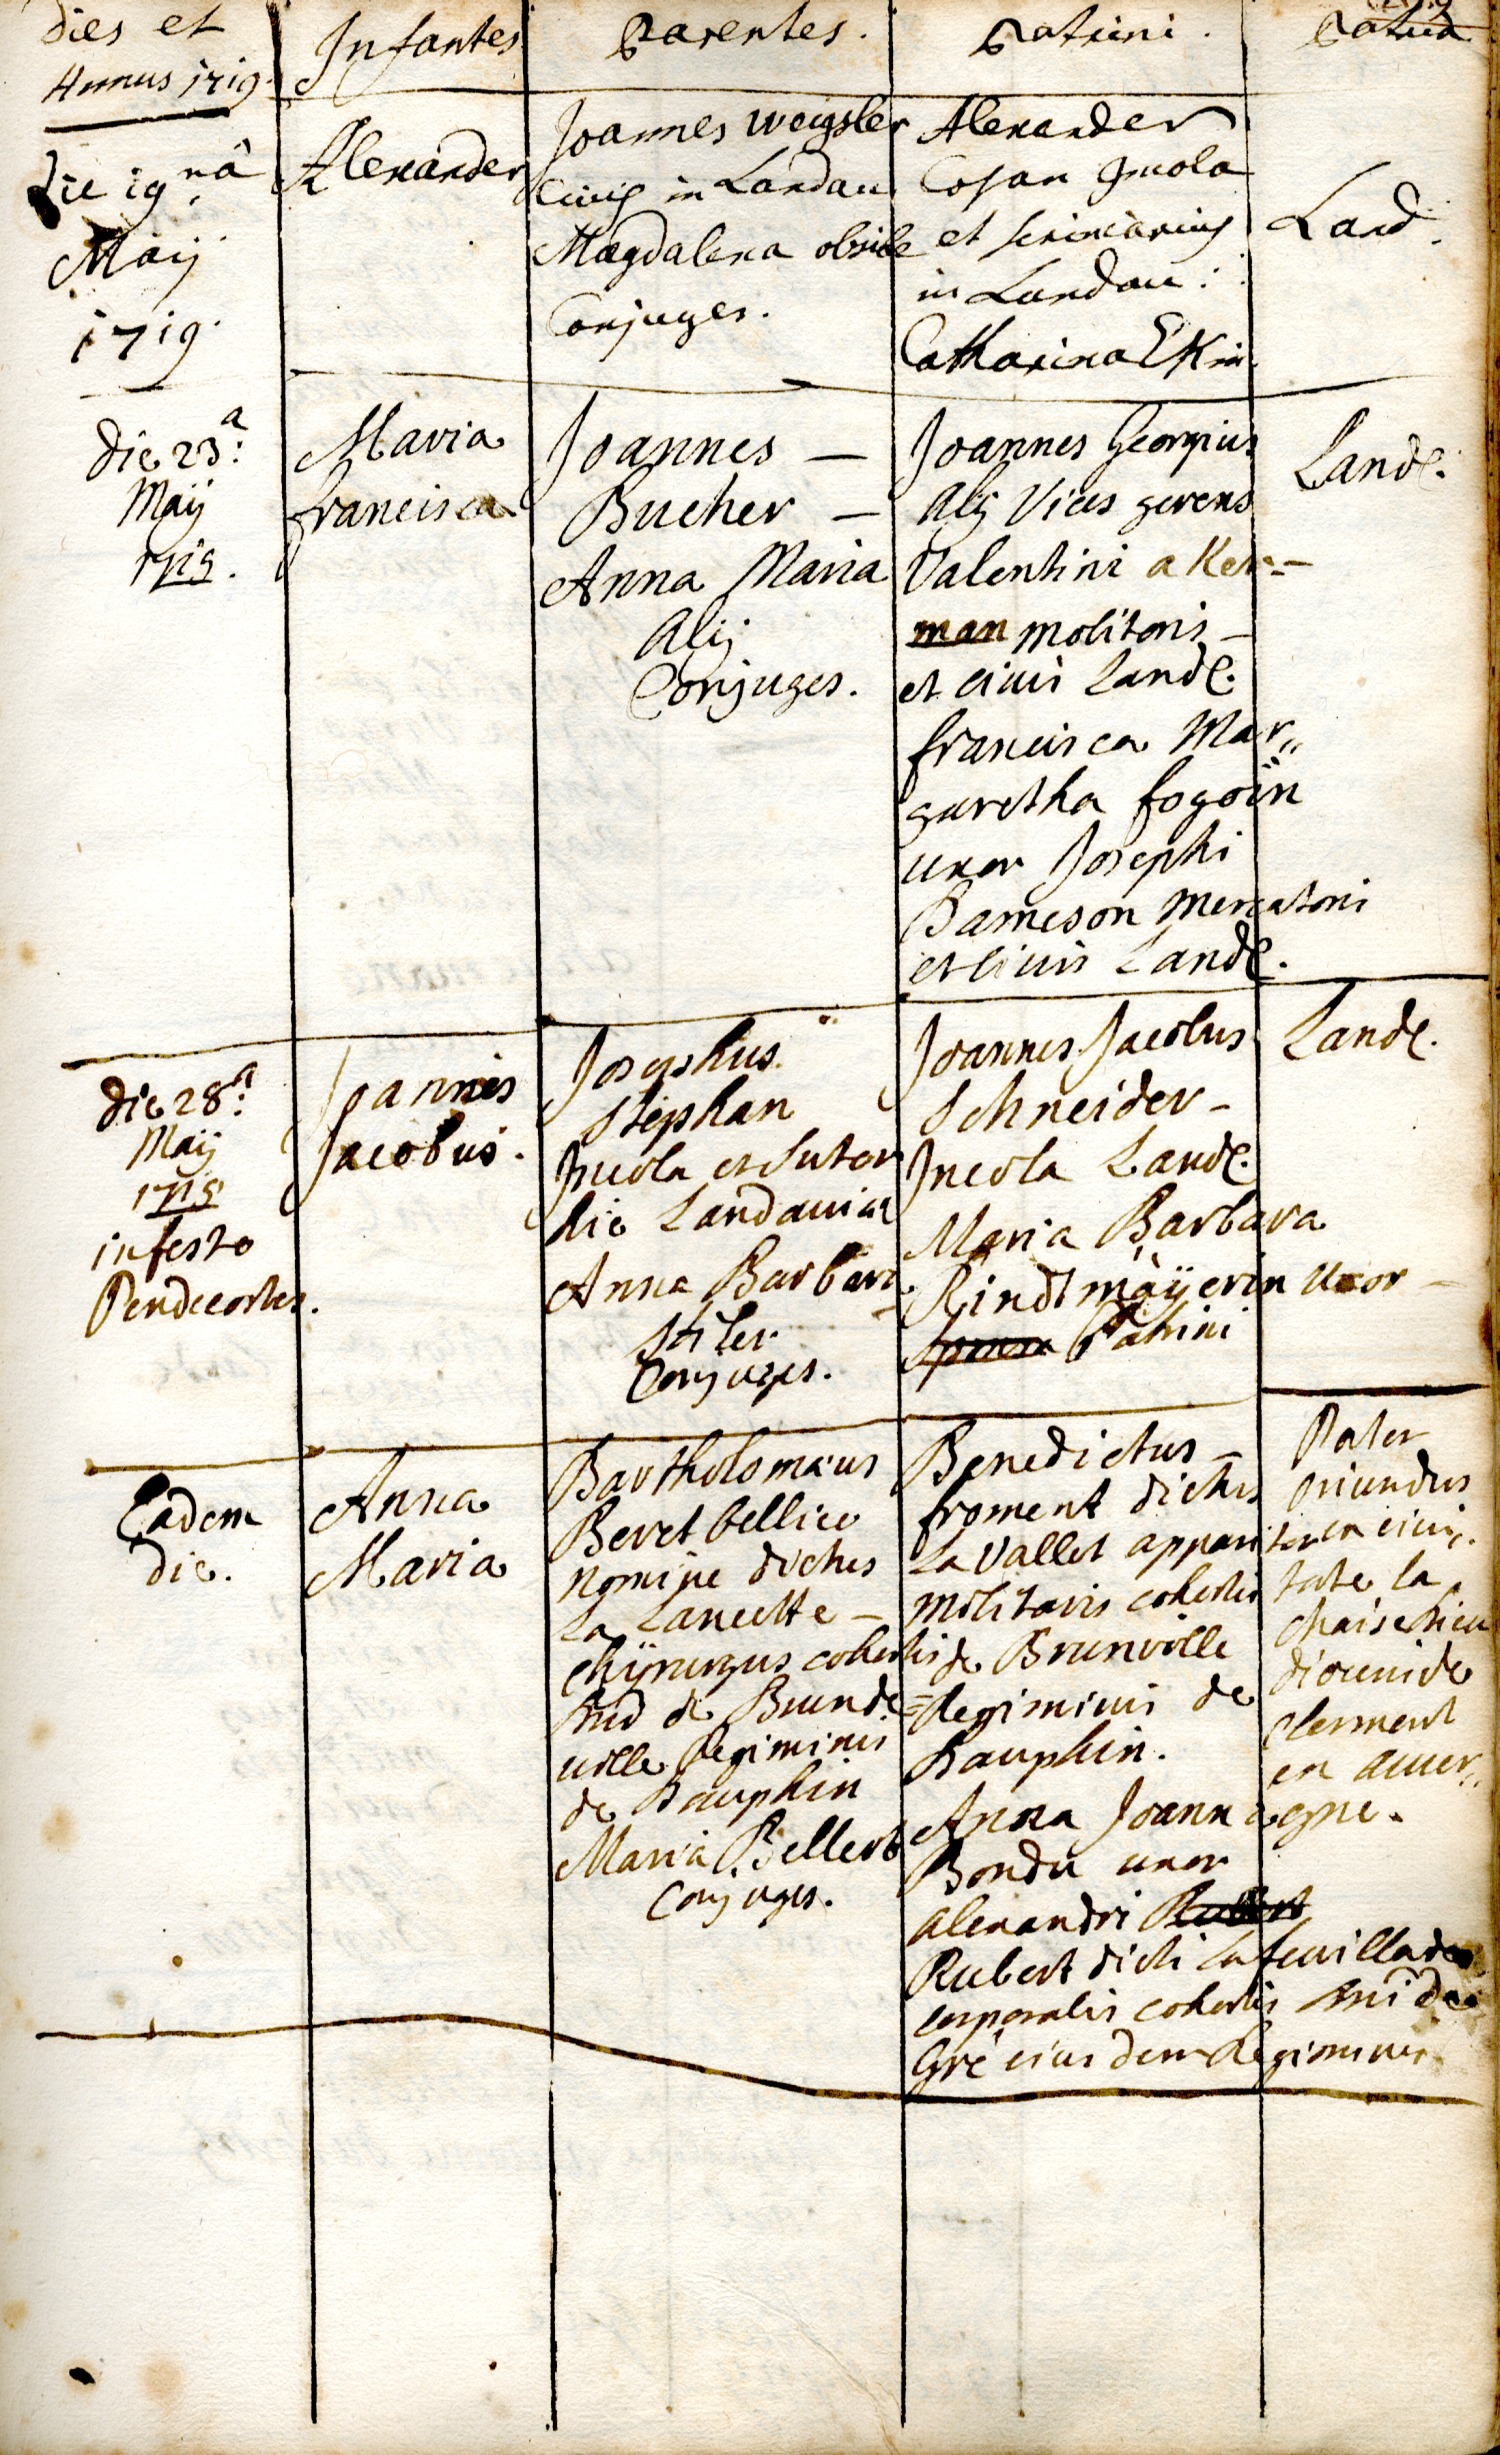 dies et
Annus 1719.
Infantes
Parentes.
Patrini.
Patria
die 19.nâ
Maij
1719.
Alexander
Joannes Weigsler
Civis in Landau
Magdalena
Conjuges.
Alexander
Incola
et scriniarius
in Landau:
Catharina
Land.
die 23.a:
Maij
1719.
Maria
francisca
Joannes —
Bucher —
Anna Maria
Alij
Conjuges.
Joannes Georgius
Alij Vices gerens
Valentini aker=
man molitoris —
et civis Land.
francisca Mar„
garetha
uxor Josephi
Bameson mercatoris
et civis Land.
Land.
die 28.a:
Maij
1719
in festo
Pendecostes.
Joannes
Jacobus.
Josephus
Stephan
Incola et Sutor
hic Landaviae
Anna Barbara
Stiler
Conjuges.
Joannes Jacobus
Schneider —
Incola Land.
Maria Barbara
Rindtmäÿerin uxor —
Patrini
Land.
Eadem
die.
Anna
Maria
Bartholomaeus
Beret bellico
nomine dictus
La Lancette —
chÿrurgus cohortis
de Brunde=
ville Regiminis
de Dauphin
Maria Bellert
Conjuges.
Benedictus —
froment dictus
La Vallet apparitor
militaris cohortis
de Brunville
Regiminis de
Dauphin.
Anna Joanna
Bondu uxor
alexandri
Rubert dicti La feuillade
corporalis cohortis
Gré eiusdem Regiminis
Pater
oriundus
ex civi„
tate la
chaise Dieu
diocensis de
clermont
en auver„
gne.